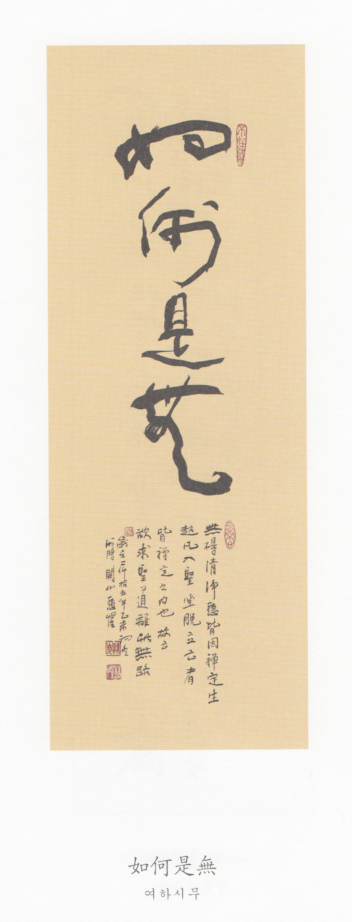 如何是無
無碍清淨慧皆因禪定生
超凡入聖坐脫立亡者
皆禪定之力也故云
欲求聖道離此無路
如何是無
여하시무